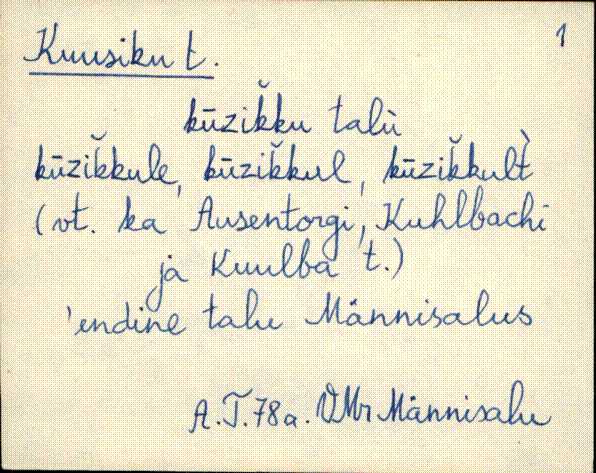 Kuusiku t.
1
kūzik̆ku talù
kūzik̆kule, kūzik̆kul, kūzik̆kult̀
(vt. ka Ausentorgi, Kuhlbachi
ja Kuulba t.)
'endine talu Männisalus
A.T.78a. VMr Männisalu